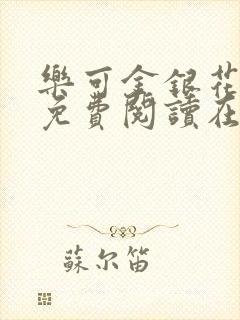 樂可金銀花
免費閱讀在
蘇尔笛